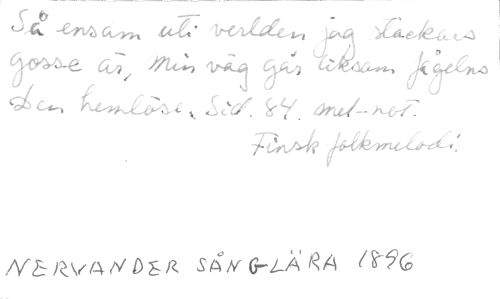 Så ensam uti verlden jag stackars
gosse är, min väg går liksom fågelns
Den hemlöse. Sid. 84. met-not.
Finsk folkmelodi.
NERVANDER SÅNGLÄRA 1896